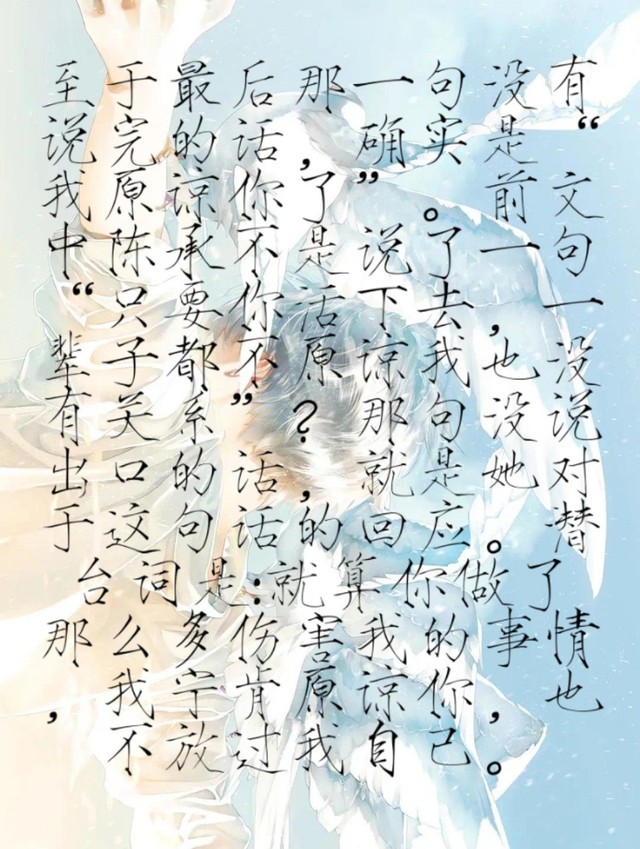 至于最后那一句没有
说完的话,确实是“
我原谅你了”。前文
中陈承不是说了一句
“只要你活下去,一
辈子都不原谅我也没
有关系”?那句没说
出口的话,就是她对
于这句话的回应。潜
台词是:就算你做了
那么多伤害我的事情
,我宁肯原谅你,也
不放过我自己。